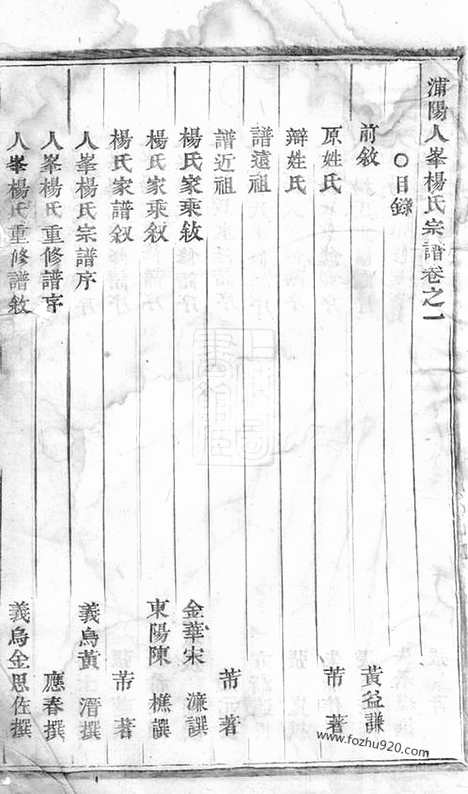 浦陽人峯楊氏宗譜卷之一
○目錄
前敘 黃益謙
原姓氏 芾著
辯姓氏
譜遠祖
譜近祖 芾著
楊氏家乘敘 金華宋濂譔
楊氏家乘敘 東陽陳樵譔
楊氏家譜叙 芾著
人峯楊氏宗譜序 義烏黃溍撰
人峯楊氏重修譜序 應春撰
人峯楊氏重修譜敘 義烏金思佐撰
www.fozhu920.com